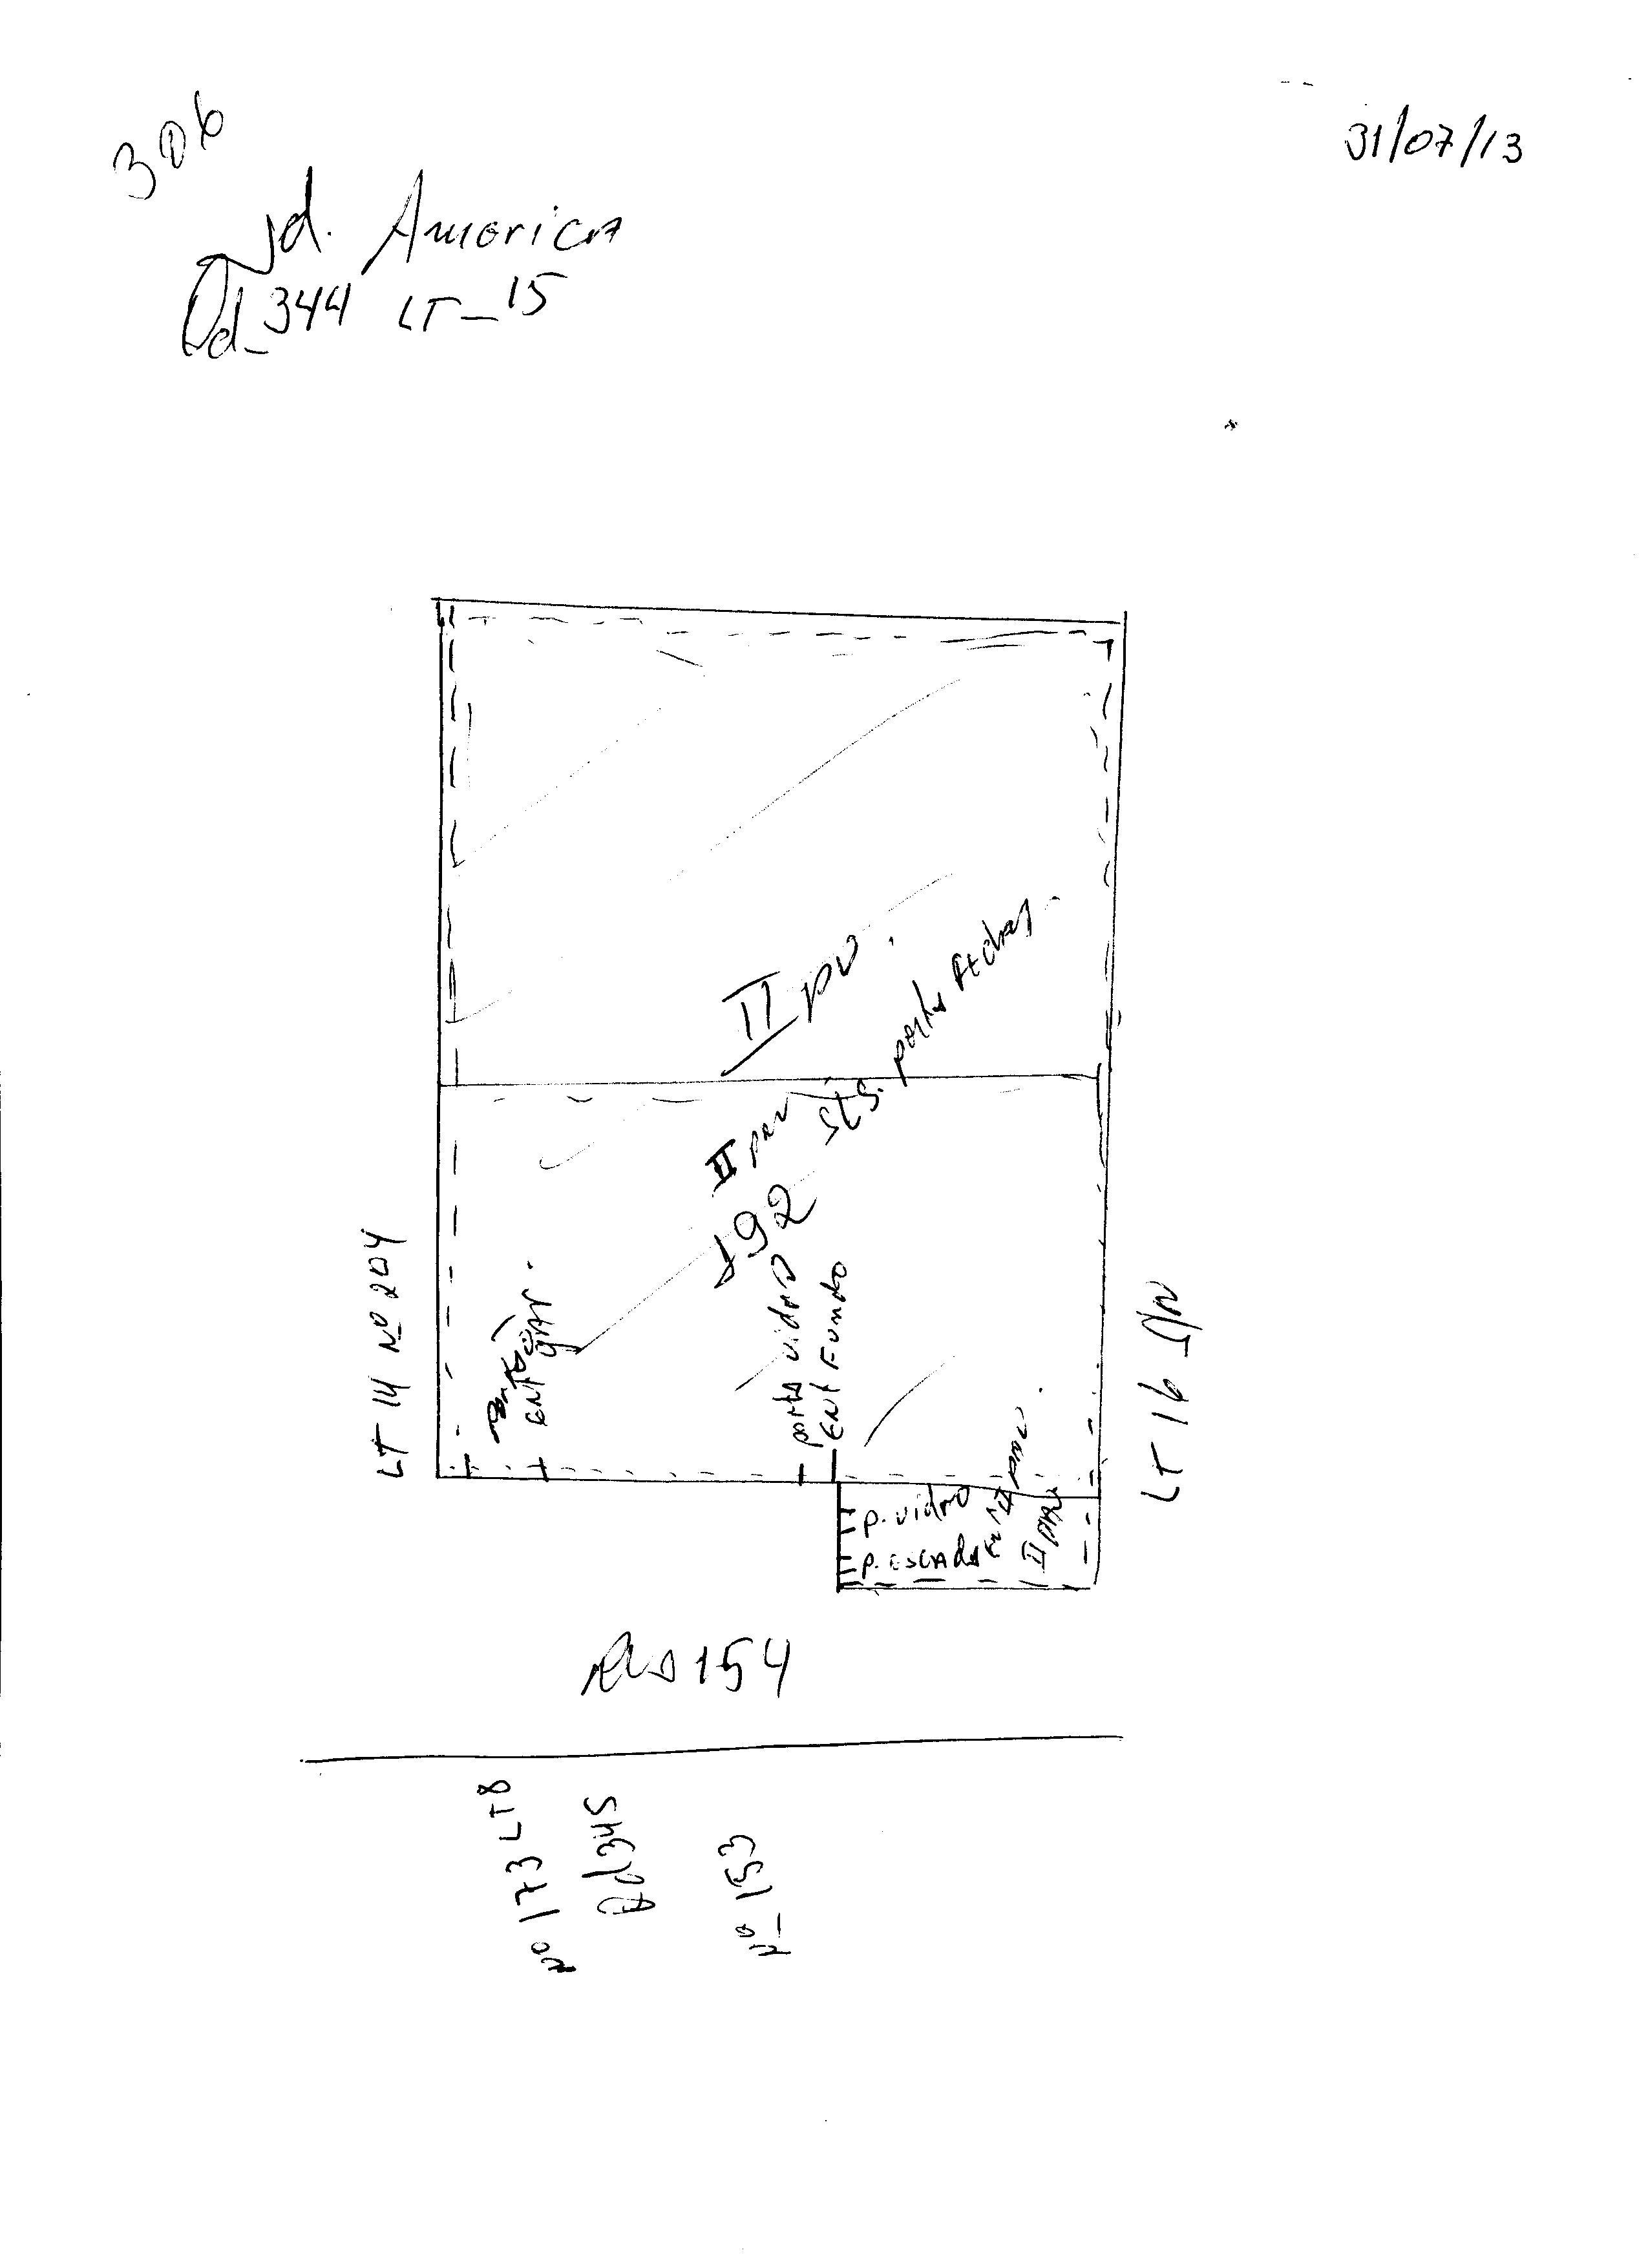 306
31/07/13
Jd. America
Qd_344 LT_15
II pv.
sts. portas
II pav
192
porta vidro
ent Fundo
LT 14 Nº 204
ent gar.
LT 16 SN
p. vidro
p. escada II pav
II pav
Rua 154
Nº 173 LT8
Qd 345
Nº 153